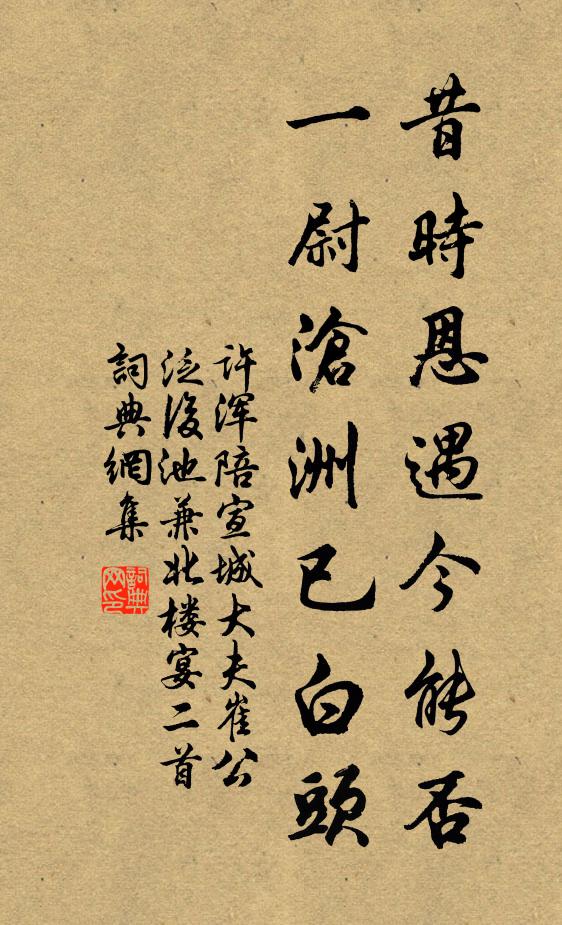 昔時恩遇今能否
一尉滄洲已白頭
许浑陪宣城大夫崔公
泛後池兼北楼宴二首
詞典網集
詞典网印